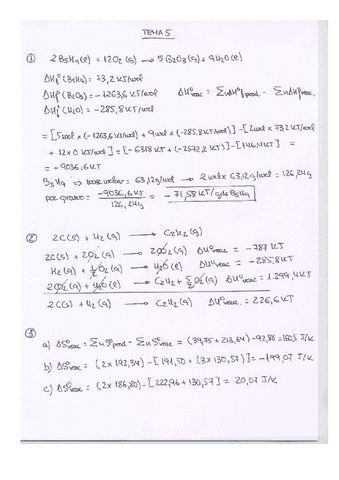 TEMA 5
① 2B5H9(l) + 12O2(g) → 5B2O3(s) + 9H2O(l)
ΔHfº(B5H9) = 73,2 KJ/mol
ΔHfº(B2O3) = -1263,6 KJ/mol ΔHºreac = ΣnΔHfºprod. - ΣnΔHfºreac.
ΔHfº(H2O) = -285,8 KJ/mol
= [5mol x (-1263,6 KJ/mol) + 9mol x (-285,8 KJ/mol)] - [2mol x 73,2 KJ/mol
+ 12 x 0 KJ/mol] = [-6318 KJ + (-2572,2 KJ)] - [146,4 KJ] =
= -9036,6 KJ
B5H9 ⇒ masa molar = 63,12g/mol → 2mol x 63,12g/mol = 126,24g
por gramo = -9036,6 KJ / 126,24g = -71,58 KJ/g de B5H9
② 2C(s) + H2(g) → C2H2(g)
2C(s) + 2O2(g) → 2CO2(g) ΔHºreac = -787 KJ
H2(g) + 1/2 O2(g) → H2O(l) ΔHºreac = -285,8 KJ
2CO2(g) + H2O(l) → C2H2 + 5/2 O2(g) ΔHºreac = 1.299,4 KJ
2C(s) + H2(g) → C2H2(g) ΔHºreac. = 226,6 KJ
③
a) ΔSºreac = ΣnSºprod - ΣnSºreac = (39,75 + 213,64) - 92,88 = 160,5 J/K
b) ΔSºreac = (2 x 192,34) - [191,50 + (3 x 130,57)] = -199,07 J/K
c) ΔSºreac = (2 x 186,80) - [222,96 + 130,57] = 20,07 J/K